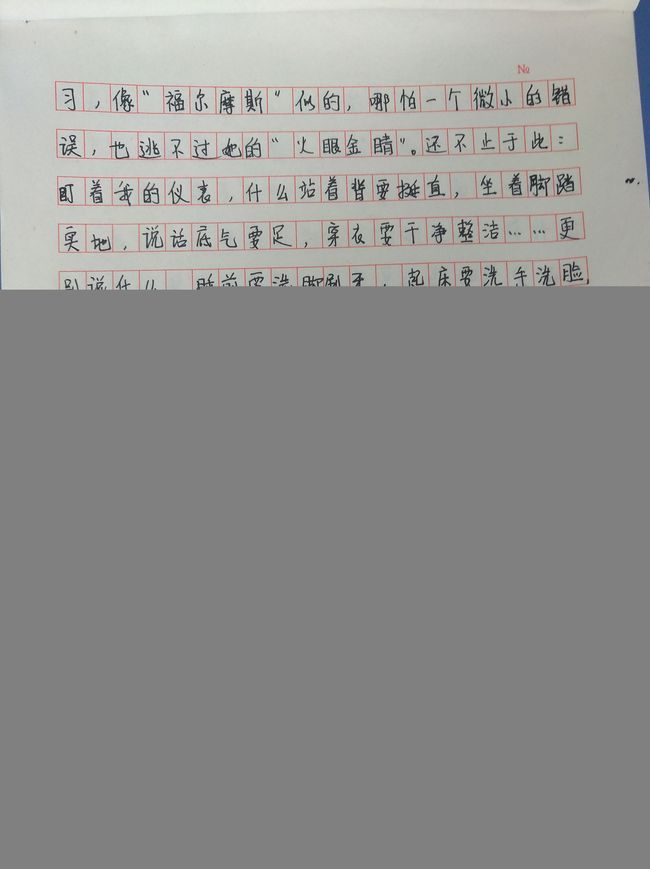 №
习，像“福尔摩斯”似的，哪怕一个微小的错
误，也逃不过她的“火眼金睛”。还不止于此：
盯着我的仪表，什么站着背要挺直，坐着脚踏
实地，说话底气要足，穿衣要干净整洁……更
别说什么，睡前要洗脚刷牙，起床要洗手洗脸，